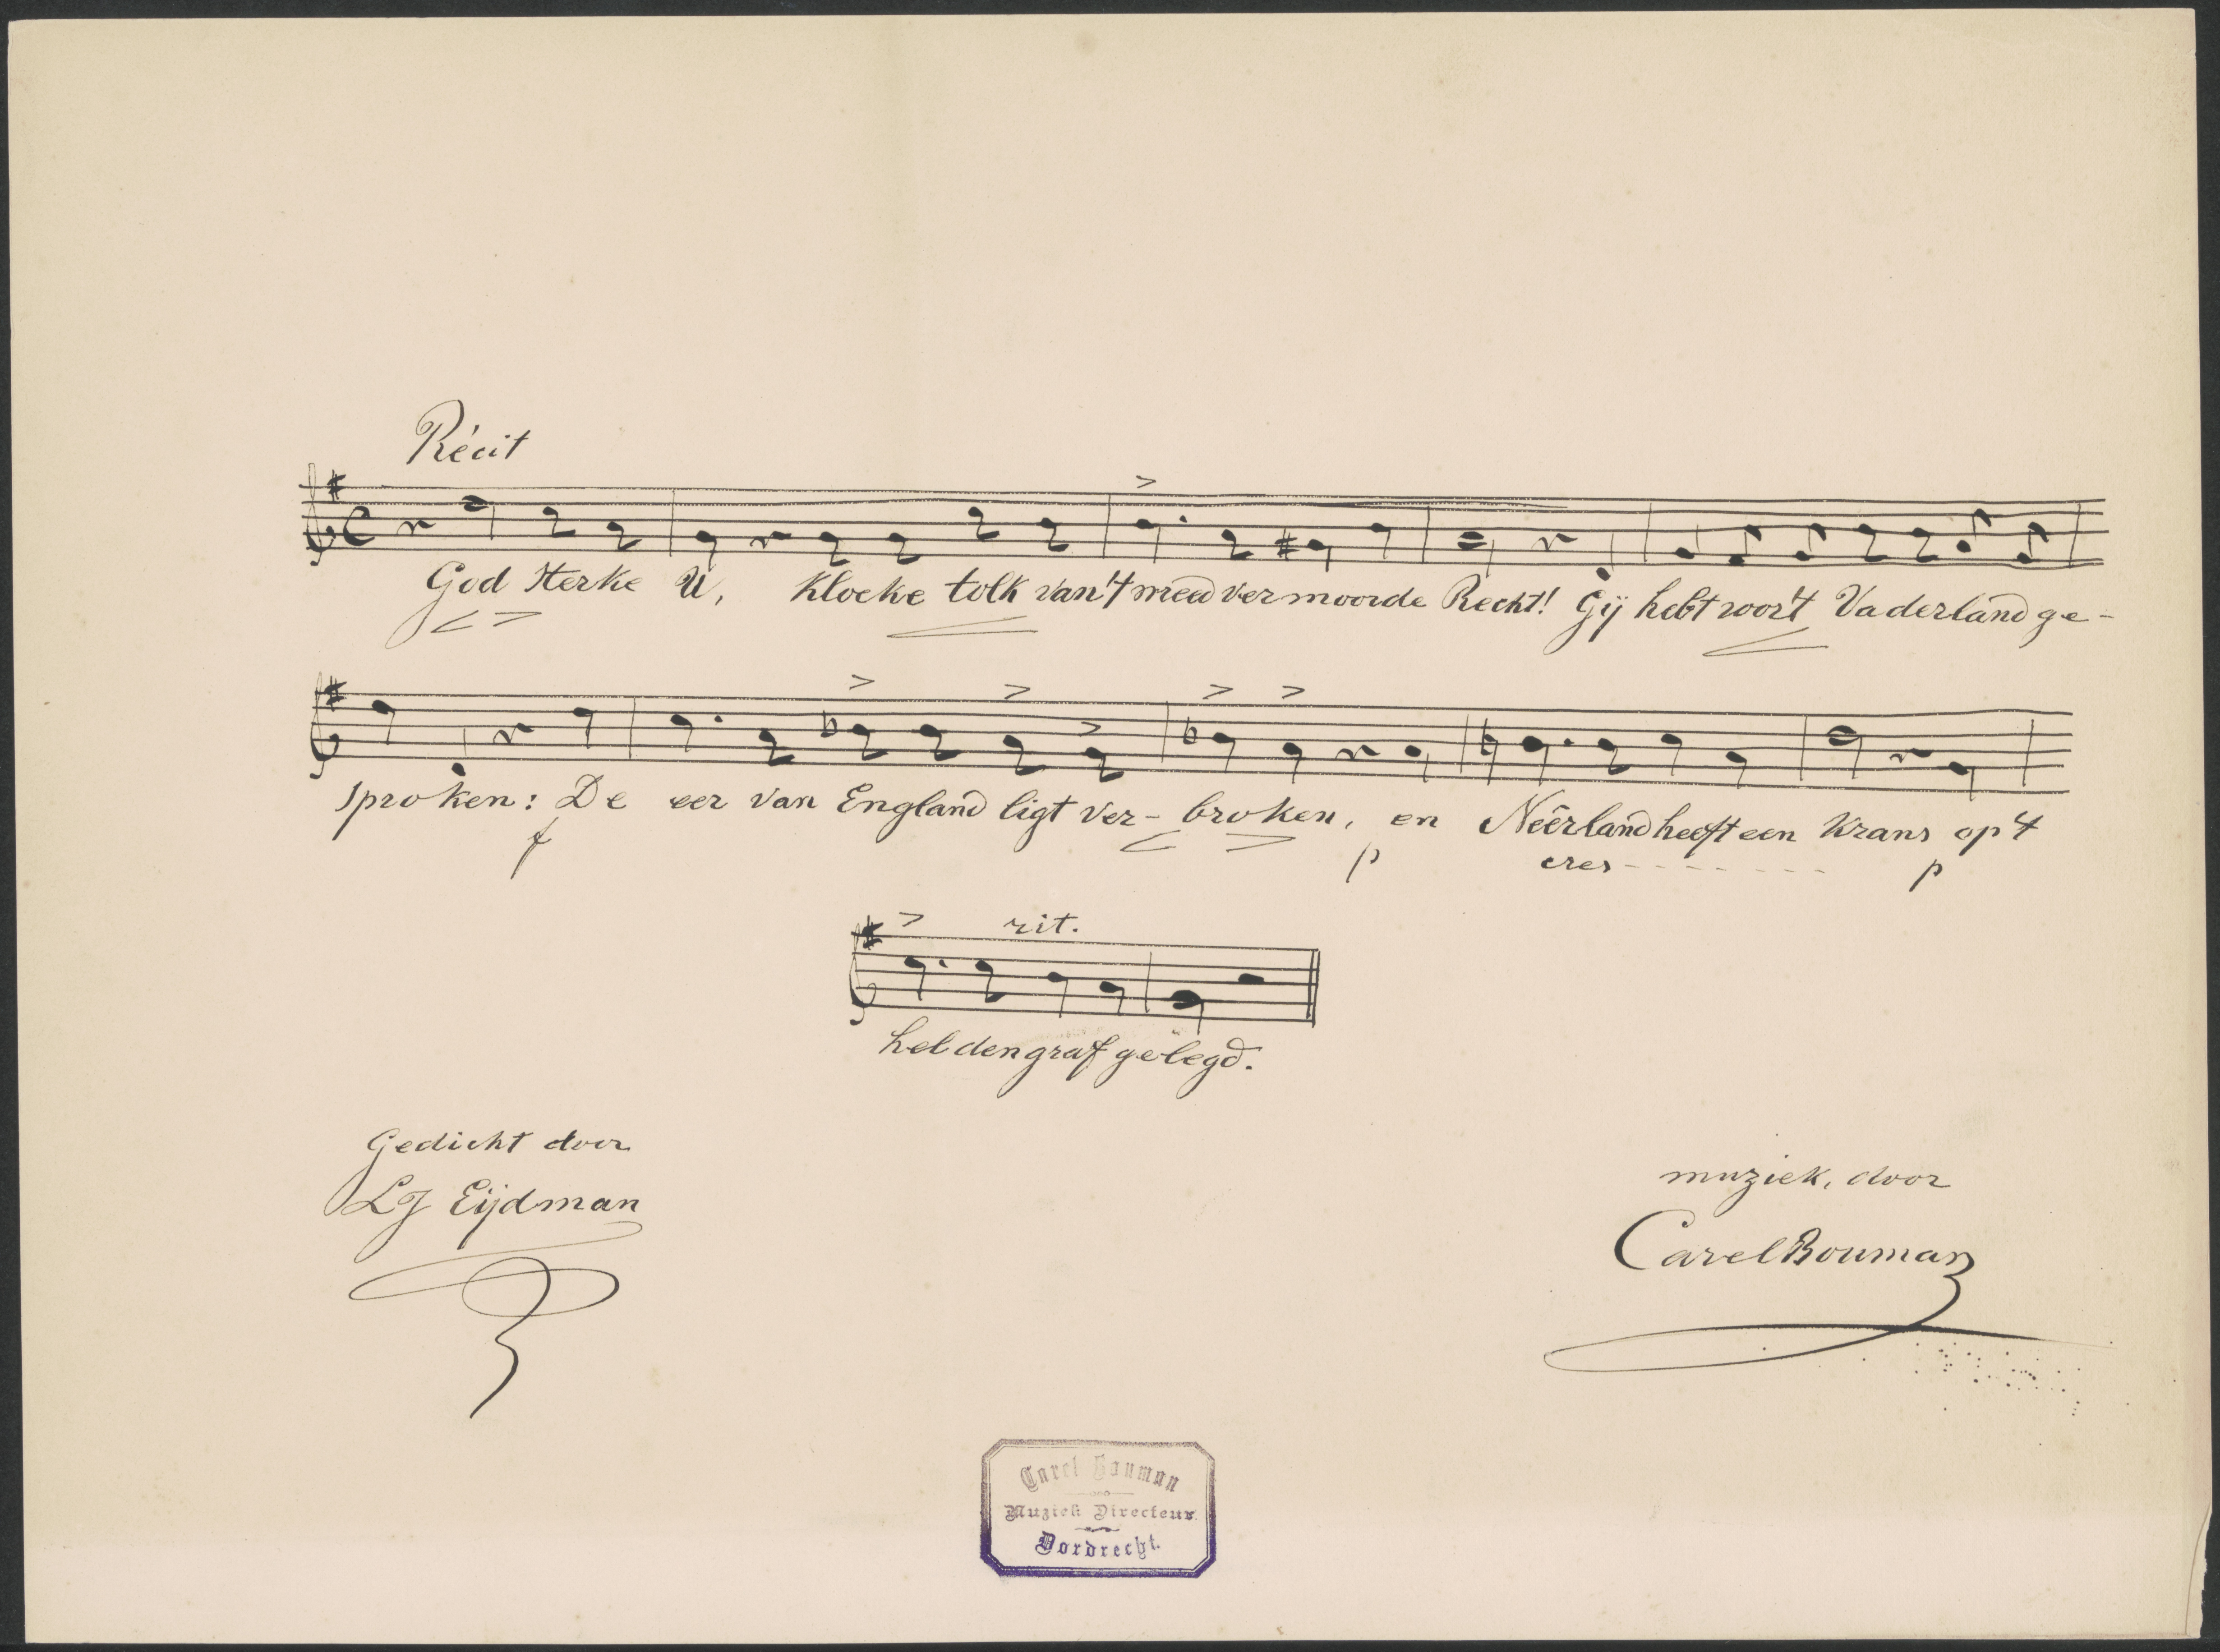 Récit
God sterke U, kloeke tolk van 't wreed vermoorde Recht! Gij hebt voor 't Vaderland ge-
sproken: De eer van England ligt ver- broken, en Neêrland heeft een krans op 't
f p cres - - - - - - - p
rit.
heldengraf gelegd.
Gedicht door
LJ Eijdman
muziek, door
Carel Bouman
Carel Bouman
Muziek Directeur
Dordrecht.